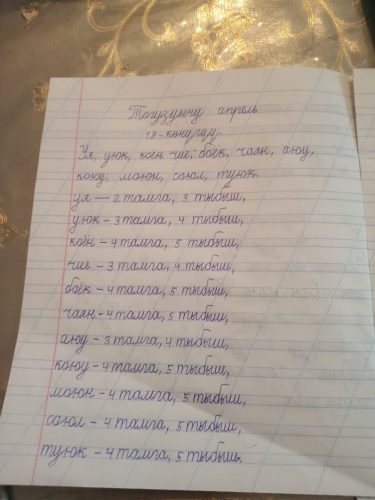 Тогузунчу апрель
19-көнүгүү.
Уя, уюк, коён чие, боёк, чаян, аюу,
коюу, моюн, союл, туюк.
уя — 2 тамга, 3 тыбыш,
уюк – 3 тамга, 4 тыбыш,
коён – 4 тамга, 5 тыбыш,
чие – 3 тамга, 4 тыбыш,
боёк – 4 тамга, 5 тыбыш,
чаян – 4 тамга, 5 тыбыш,
аюу – 3 тамга, 4 тыбыш,
коюу – 4 тамга, 5 тыбыш,
моюн – 4 тамга, 5 тыбыш,
союл – 4 тамга, 5 тыбыш,
туюк – 4 тамга, 5 тыбыш.